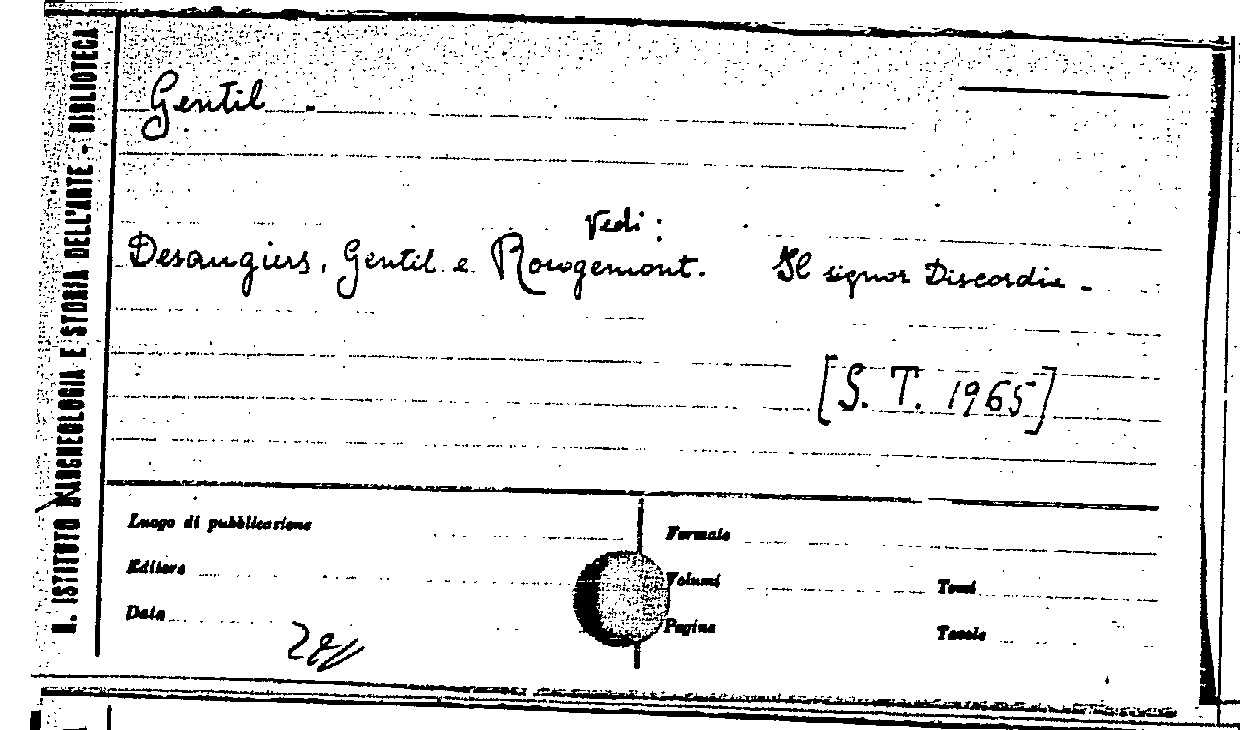 R. ISTITUTO D'ARCHEOLOGIA E STORIA DELL'ARTE - BIBLIOTECA
Gentil.
Vedi:
Desaugiers, Gentil e Rougemont. Il signor Discordie.
[S. T. 1965]
Luogo di pubblicazione
Formato
Editore
Volumi
Tomi
Data
Pagine
Tavole